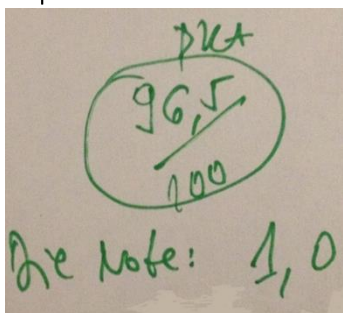 96,5
100
Die Note: 1,0